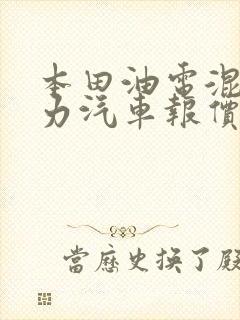 本田油電混
力汽車報價
當歷史換了殿